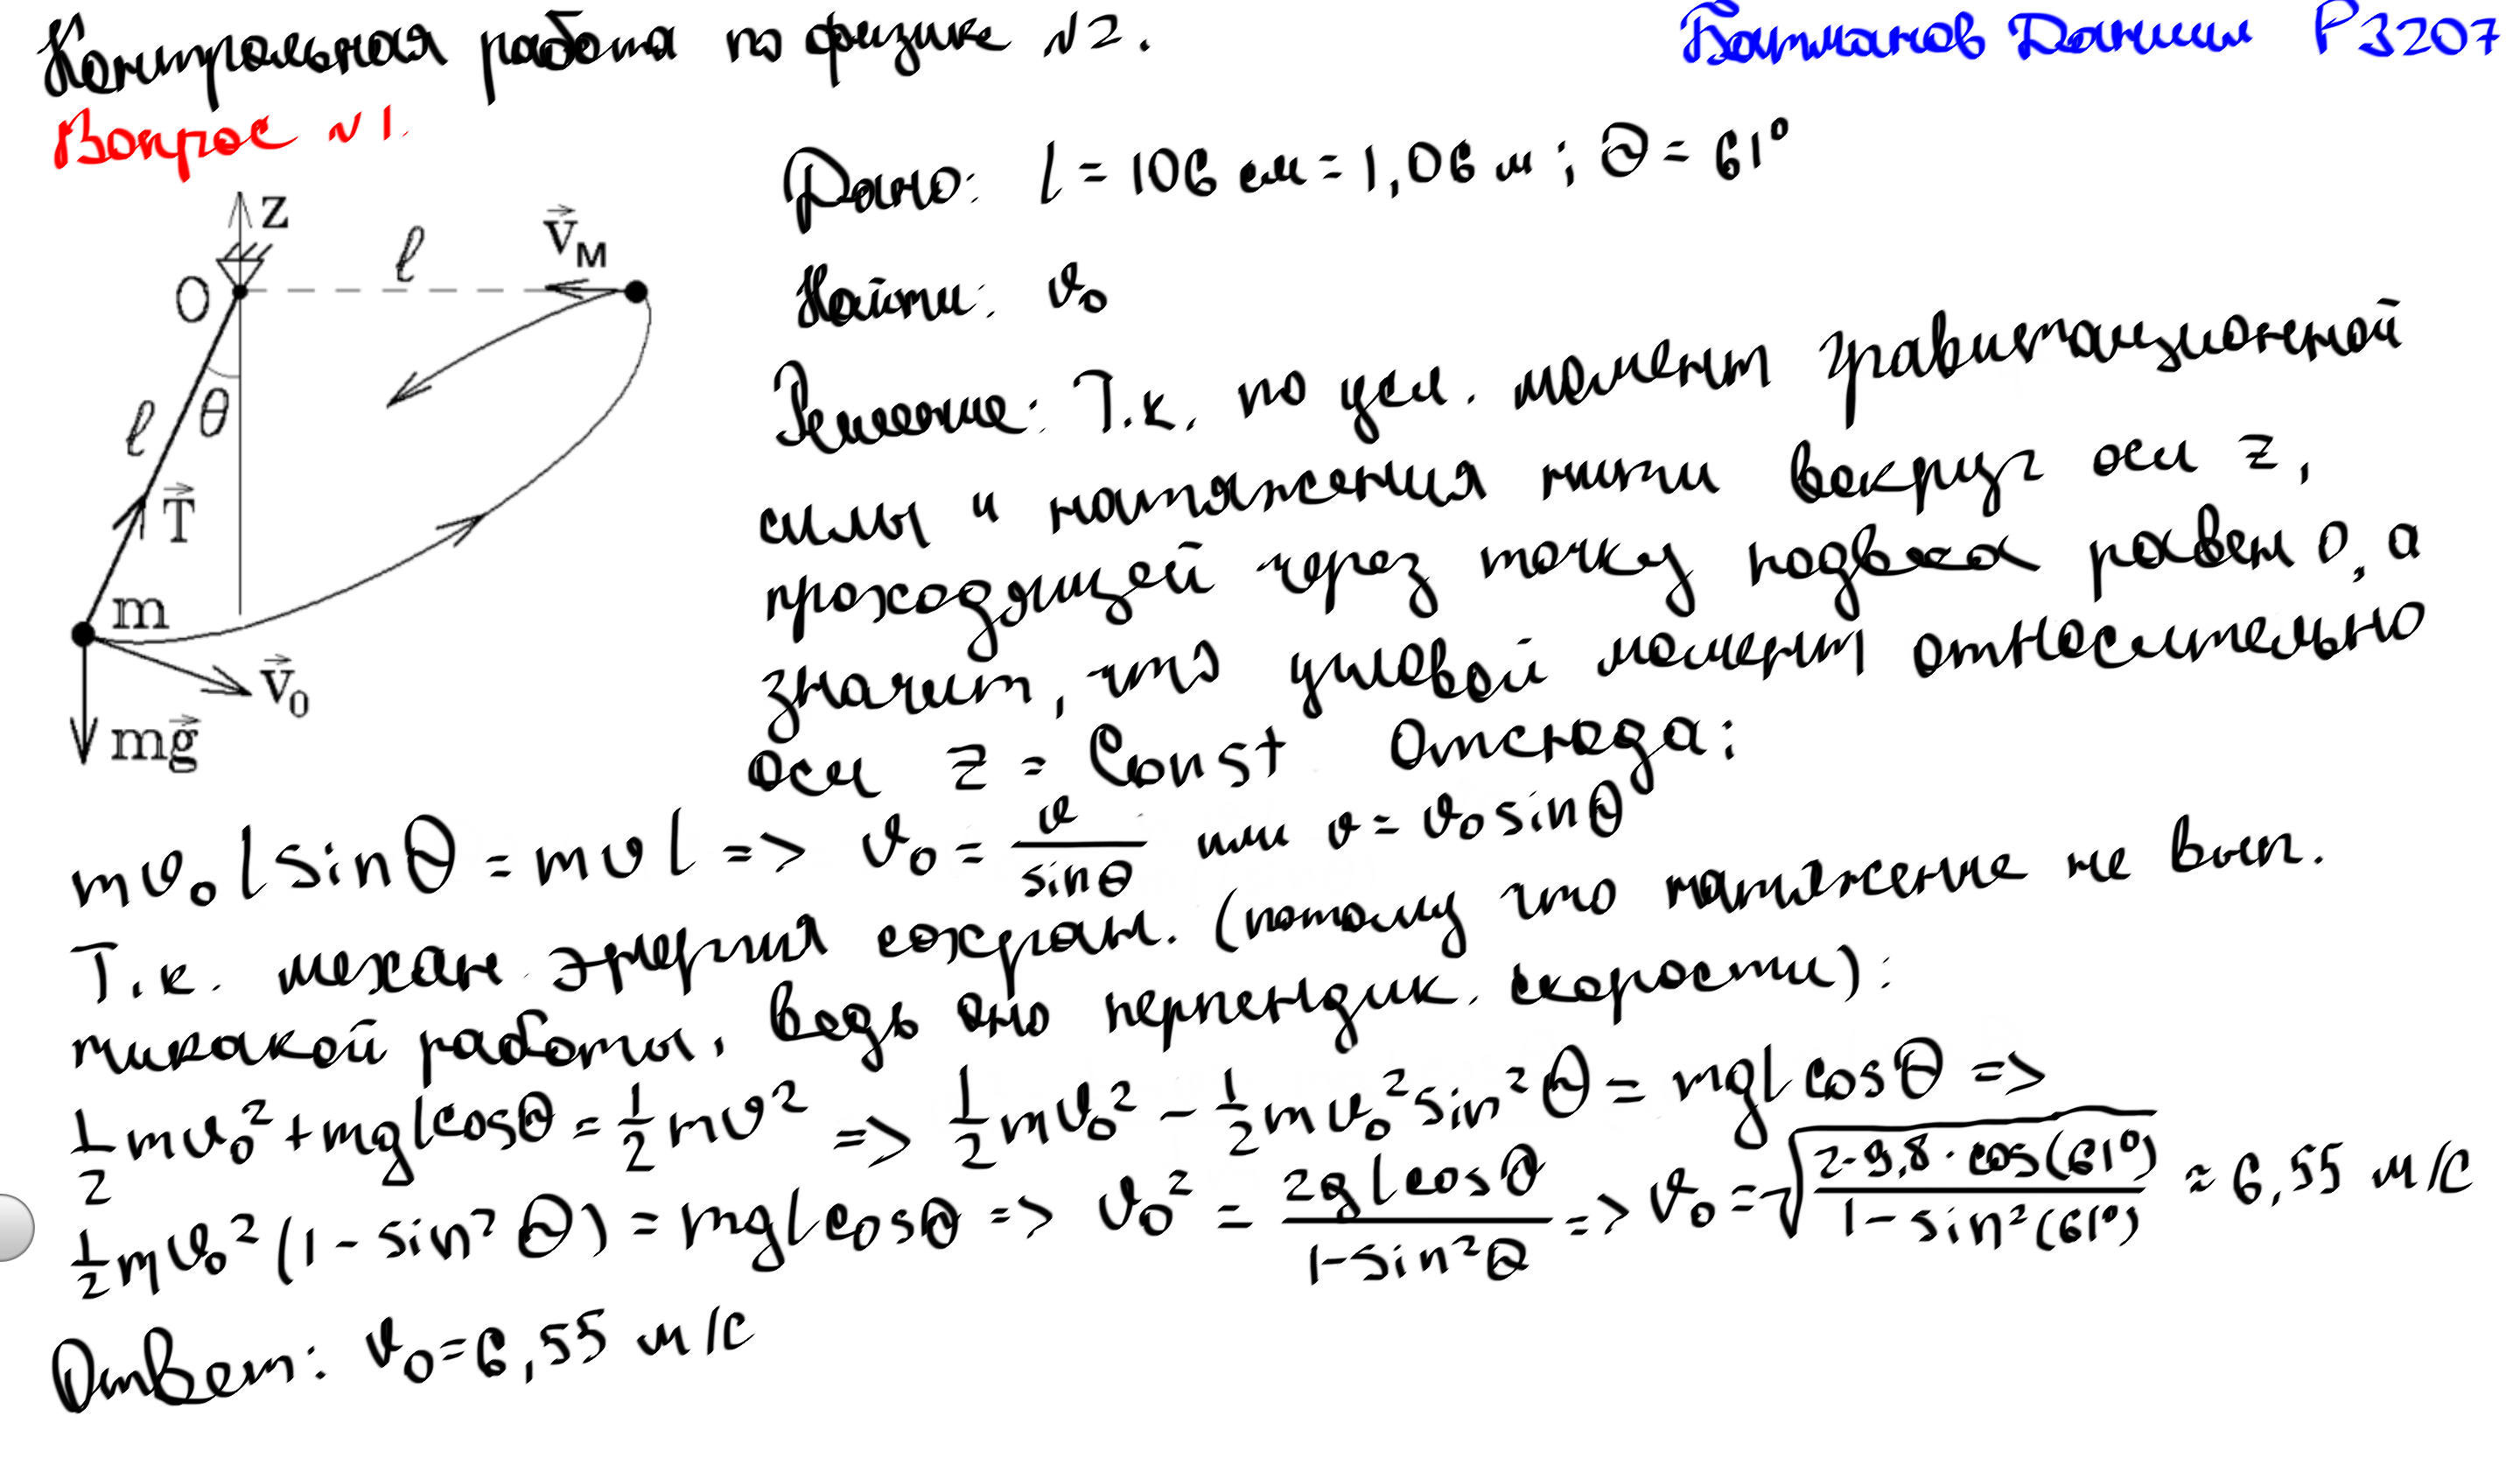 Контрольная работа по физике №2.
Батманов Даниил P3207
Вопрос №1.
Дано: l = 106 см = 1,06 м ; θ = 61°
Найти: v₀
z
l
v⃗_M
O
θ
l
T⃗
m
v⃗₀
mg⃗
Решение: Т.к. по усл. момент гравитационной
силы и натяжения нити вокруг оси z,
проходящей через точку подвеса равен 0, а
значит, что угловой момент относительно
оси z = Const Отсюда:
mv₀lsinθ = mvl => v₀ = v/sinθ или v = v₀sinθ
Т.к. механ. энергия сохран. (потому что натяжение не вып.
никакой работы, ведь оно перпендик. скорости):
1/2 mv₀² + mglcosθ = 1/2 mv² => 1/2 mv₀² - 1/2 mv₀²sin²θ = mglcosθ =>
1/2 mv₀²(1 - sin²θ) = mglcosθ => v₀² = 2glcosθ/(1-sin²θ) => v₀ = √(2·9,8·cos(61°)/(1-sin²(61°))) ≈ 6,55 м/с
Ответ: v₀ = 6,55 м/с